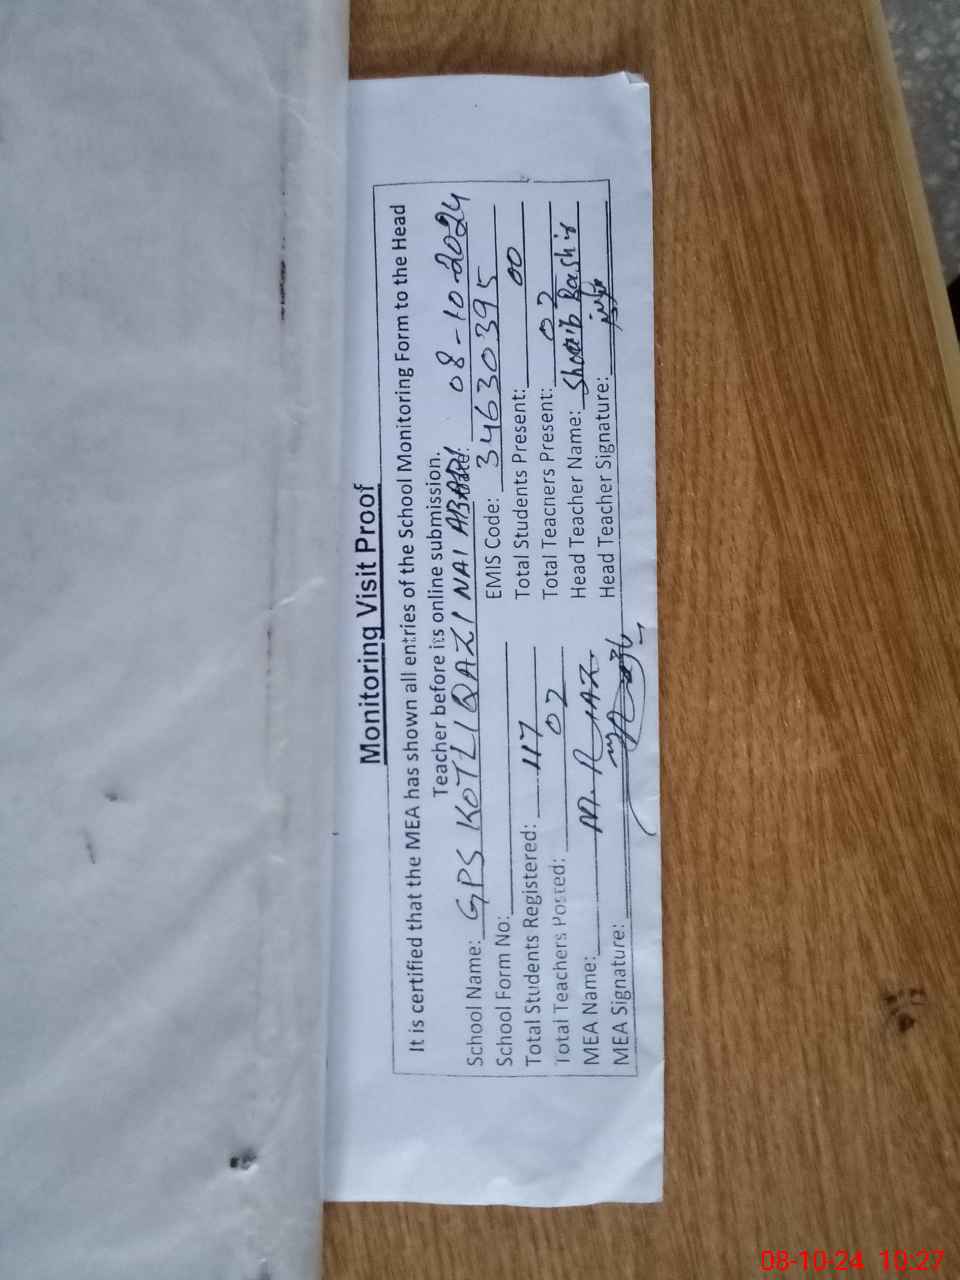 Monitoring Visit Proof
It is certified that the MEA has shown all entries of the School Monitoring Form to the Head
Teacher before its online submission.
School Name: GPS KOTLI QAZI NAI ABADI Date: 08-10-2024
School Form No: EMIS Code: 34630395
Total Students Registered: 117 Total Students Present: 00
Total Teachers Posted: 02 Total Teachers Present: 02
MEA Name: M. RIAZ Head Teacher Name: Shoaib Bashir
MEA Signature: Head Teacher Signature:
08-10-24 10:27